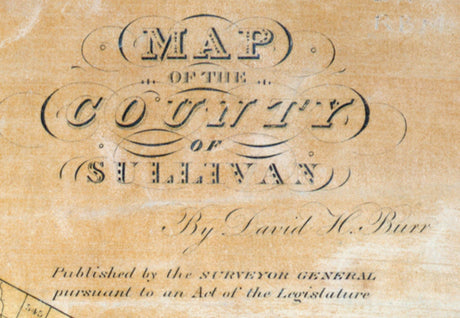 MAP
OF THE
COUNTY
OF
SULLIVAN
By David H. Burr
Published by the SURVEYOR GENERAL
pursuant to an Act of the Legislature
345